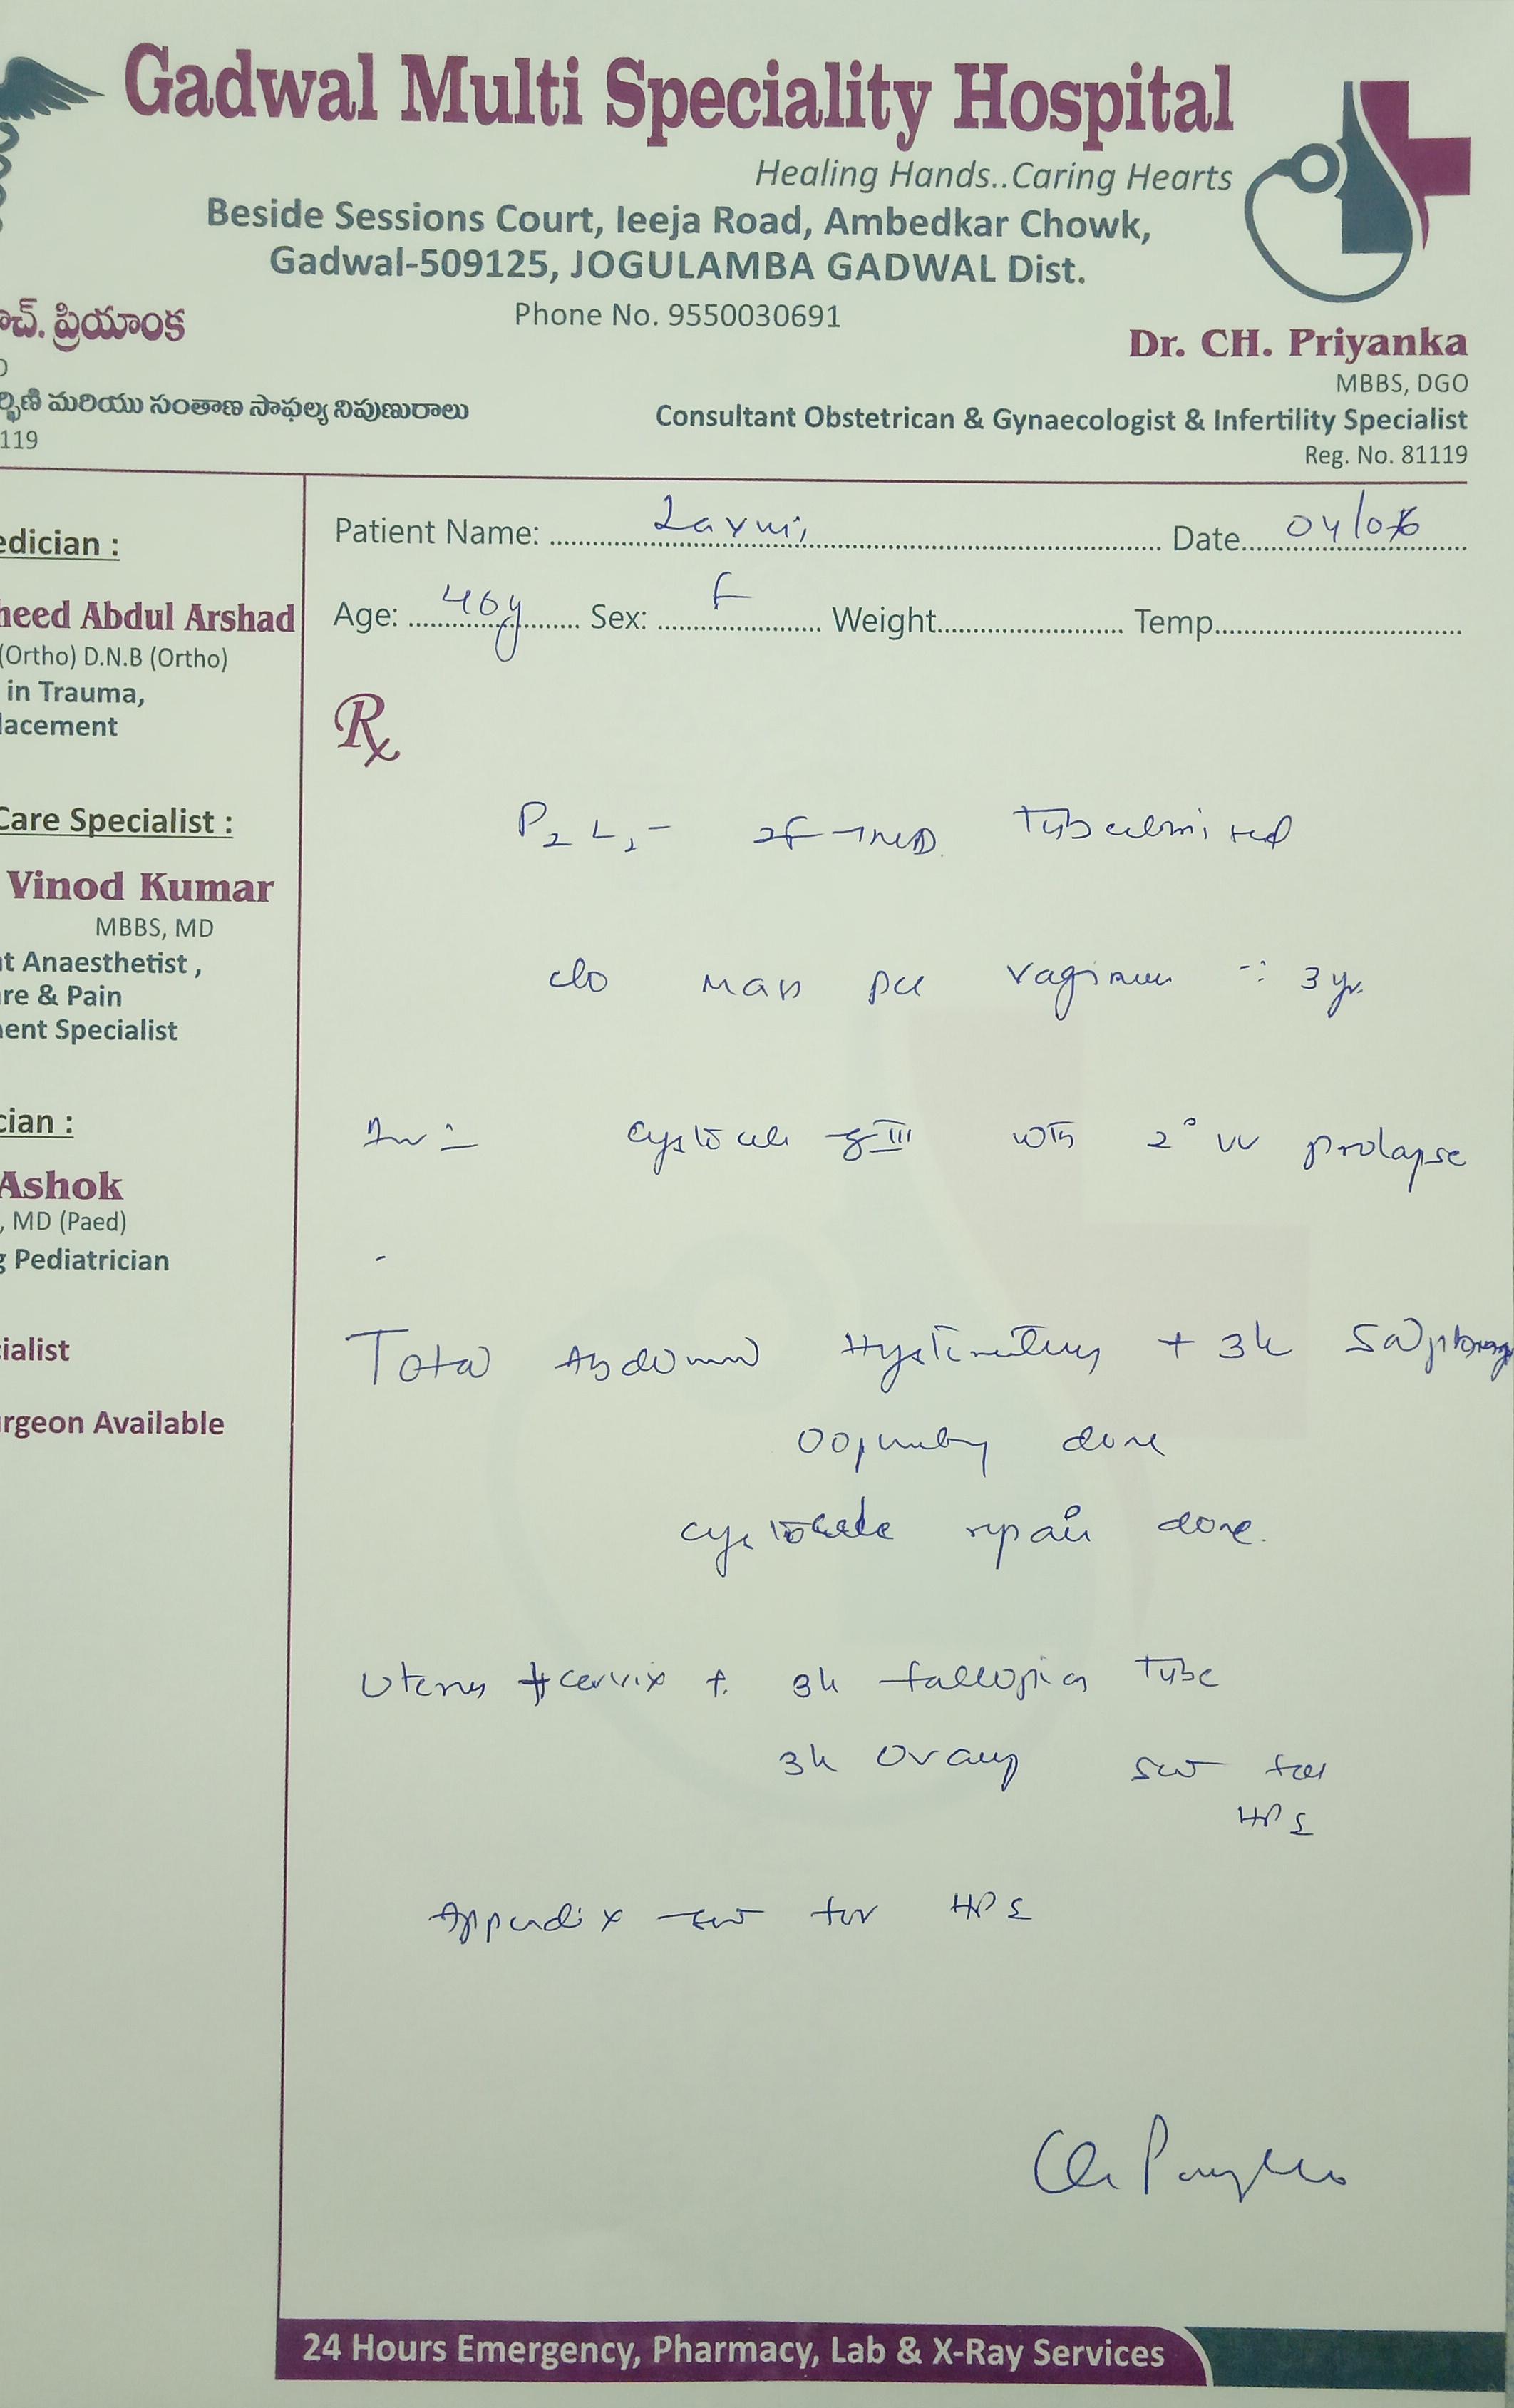 Gadwal Multi Speciality Hospital
Healing Hands..Caring Hearts
Beside Sessions Court, Ieeja Road, Ambedkar Chowk,
Gadwal-509125, JOGULAMBA GADWAL Dist.
Phone No. 9550030691
చ్. ప్రియాంక
ర్భిణి మరియు సంతాణ సాఫల్య నిపుణురాలు
119
Dr. CH. Priyanka
MBBS, DGO
Consultant Obstetrican & Gynaecologist & Infertility Specialist
Reg. No. 81119
edician :
heed Abdul Arshad
(Ortho) D.N.B (Ortho)
in Trauma,
lacement
Care Specialist :
Vinod Kumar
MBBS, MD
t Anaesthetist ,
re & Pain
ent Specialist
cian :
Ashok
, MD (Paed)
g Pediatrician
ialist
urgeon Available
Patient Name: Laxmi Date 04/06
Age: 46y Sex: F Weight Temp
Rx
P2 L2 - Tubectomised
c/o mass per vaginum 3 yr.
cystocele g III with 2° uv prolapse
Total Abdominal Hysterectomy + Salphingo
Oophorectomy done
cystocele repair done.
Uterus + cervix + fallopian Tube
Ovary sent for
HPE
Appendix sent for HPE
Ch Priyanka
24 Hours Emergency, Pharmacy, Lab & X-Ray Services